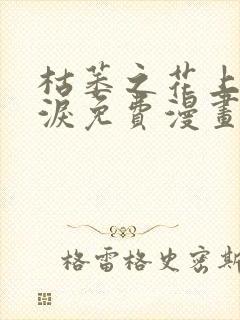 枯萎之花上
淚免費漫畫
格雷格史密斯